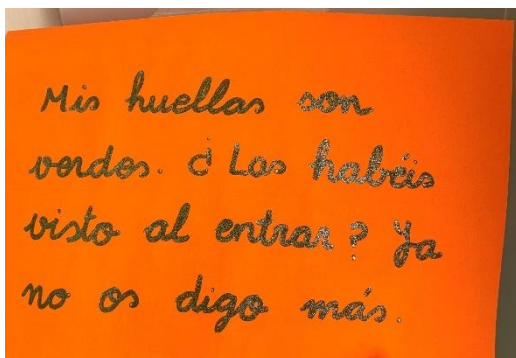 Mis huellas son
verdes. ¿Las habéis
visto al entrar? Ya
no os digo más.